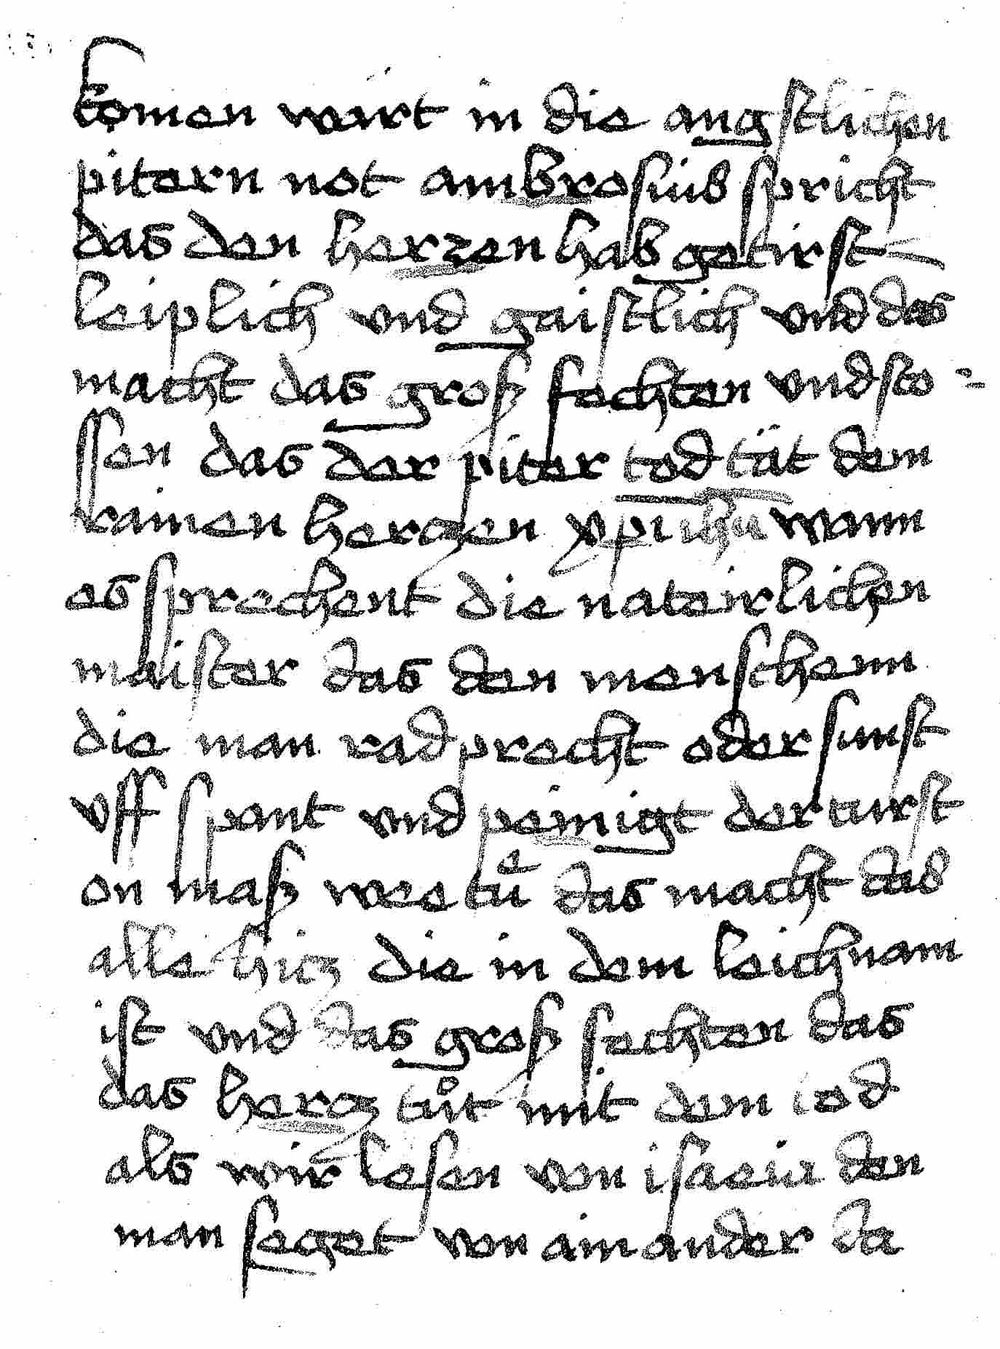 komen wärt in die angstlichen
pitern not ambrosius spricht
das den herzen hab getirst
leiplich vnd gaistlich vnd das
macht das groß fechten vnd sto=
ssen das der piter tod tät dem
rainen herczen xpi ihu wann
es sprechent die nateirlichen
maister das den menschenn
die man radprecht oder sunst
vff spant vnd peinigt der turst
on maß wee tuͤ das macht das
alle hicz die in dem leichnam
ist vnd das groß fechten das
das hercz tuͦt mit dem tod
als wir lesen von isaeia den
man seget von ainander da